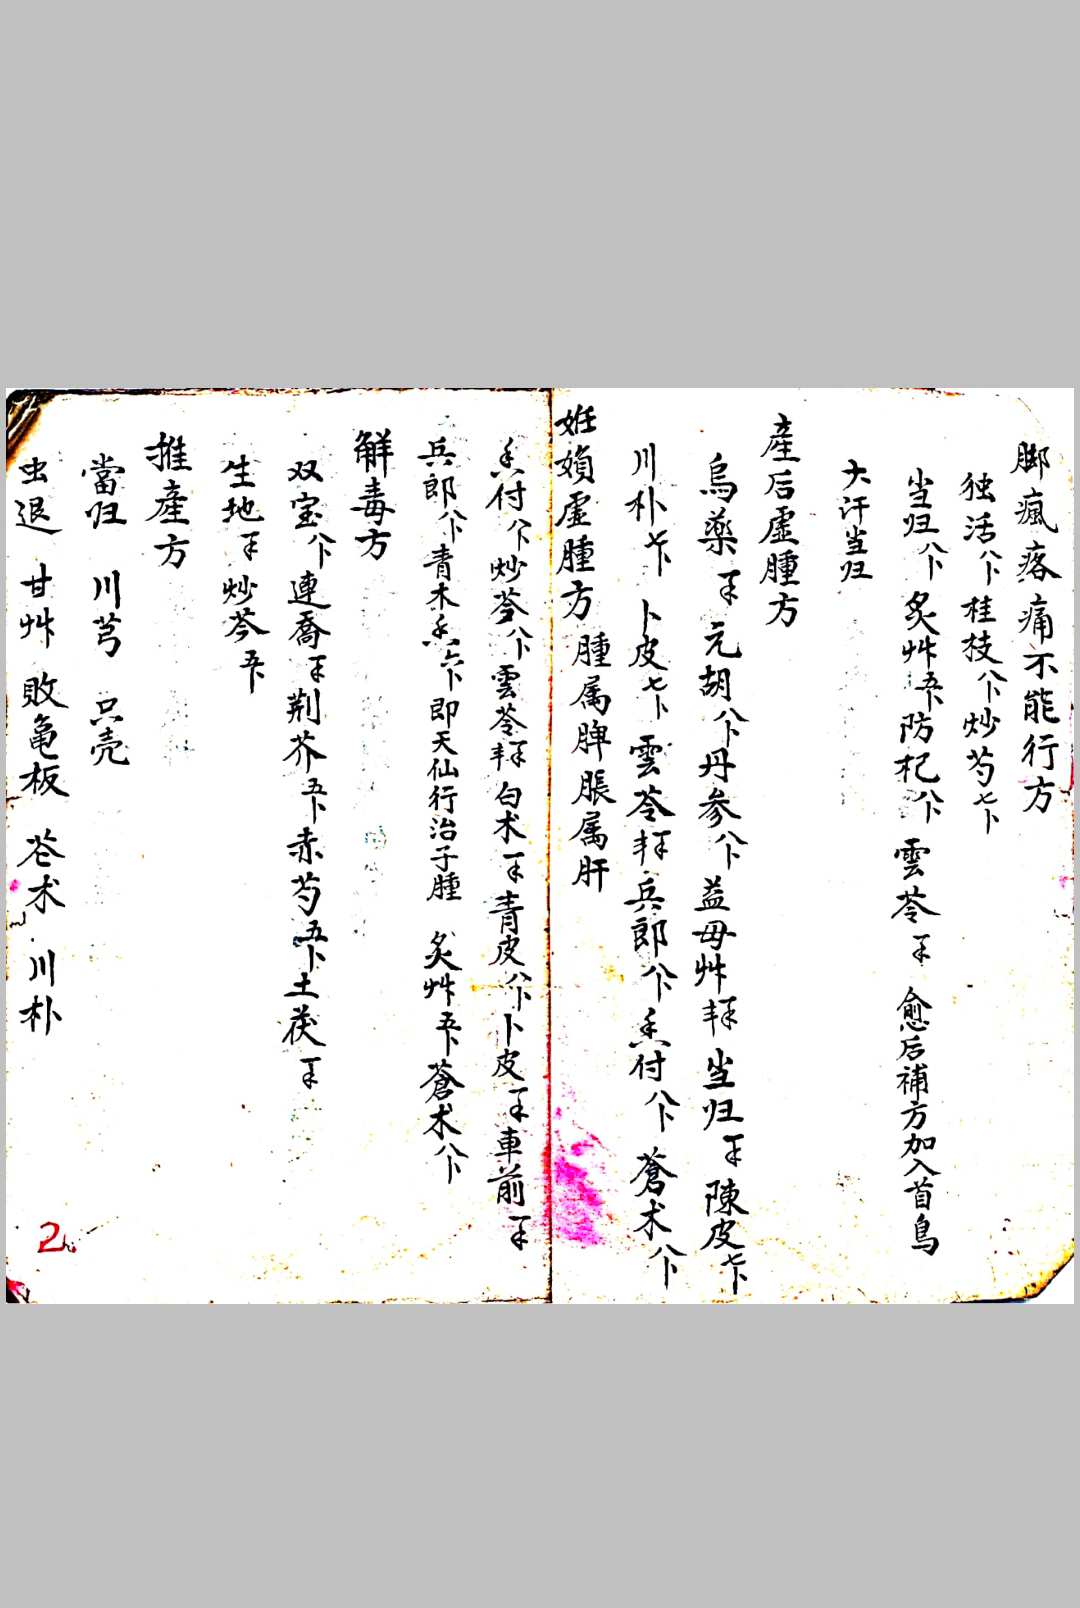 脚瘋痛不能行方
独活八卜桂枝八卜炒芍七卜
当归八卜炙艸五卜防杞八卜雲苓 愈后補方加入首烏
大汗当归
產后虛腫方
烏藥 元胡八卜丹参八卜益母艸 当归 陳皮七卜
川朴七卜 卜皮七卜 雲苓 兵郎八卜香付八卜 蒼术八卜
姙娠虛腫方 腫属脾脹属肝
香付八卜炒芩八卜雲苓 白术 青皮八卜卜皮 車前
兵郎八卜青木香六卜即天仙行治子腫 炙艸五卜蒼术八卜
解毒方
双宝八卜連喬 荆芥五卜赤芍五卜土茯
生地 炒芩五卜
推產方
當归 川芎 只壳
虫退 甘艸 敗亀板 苍术 川朴
2